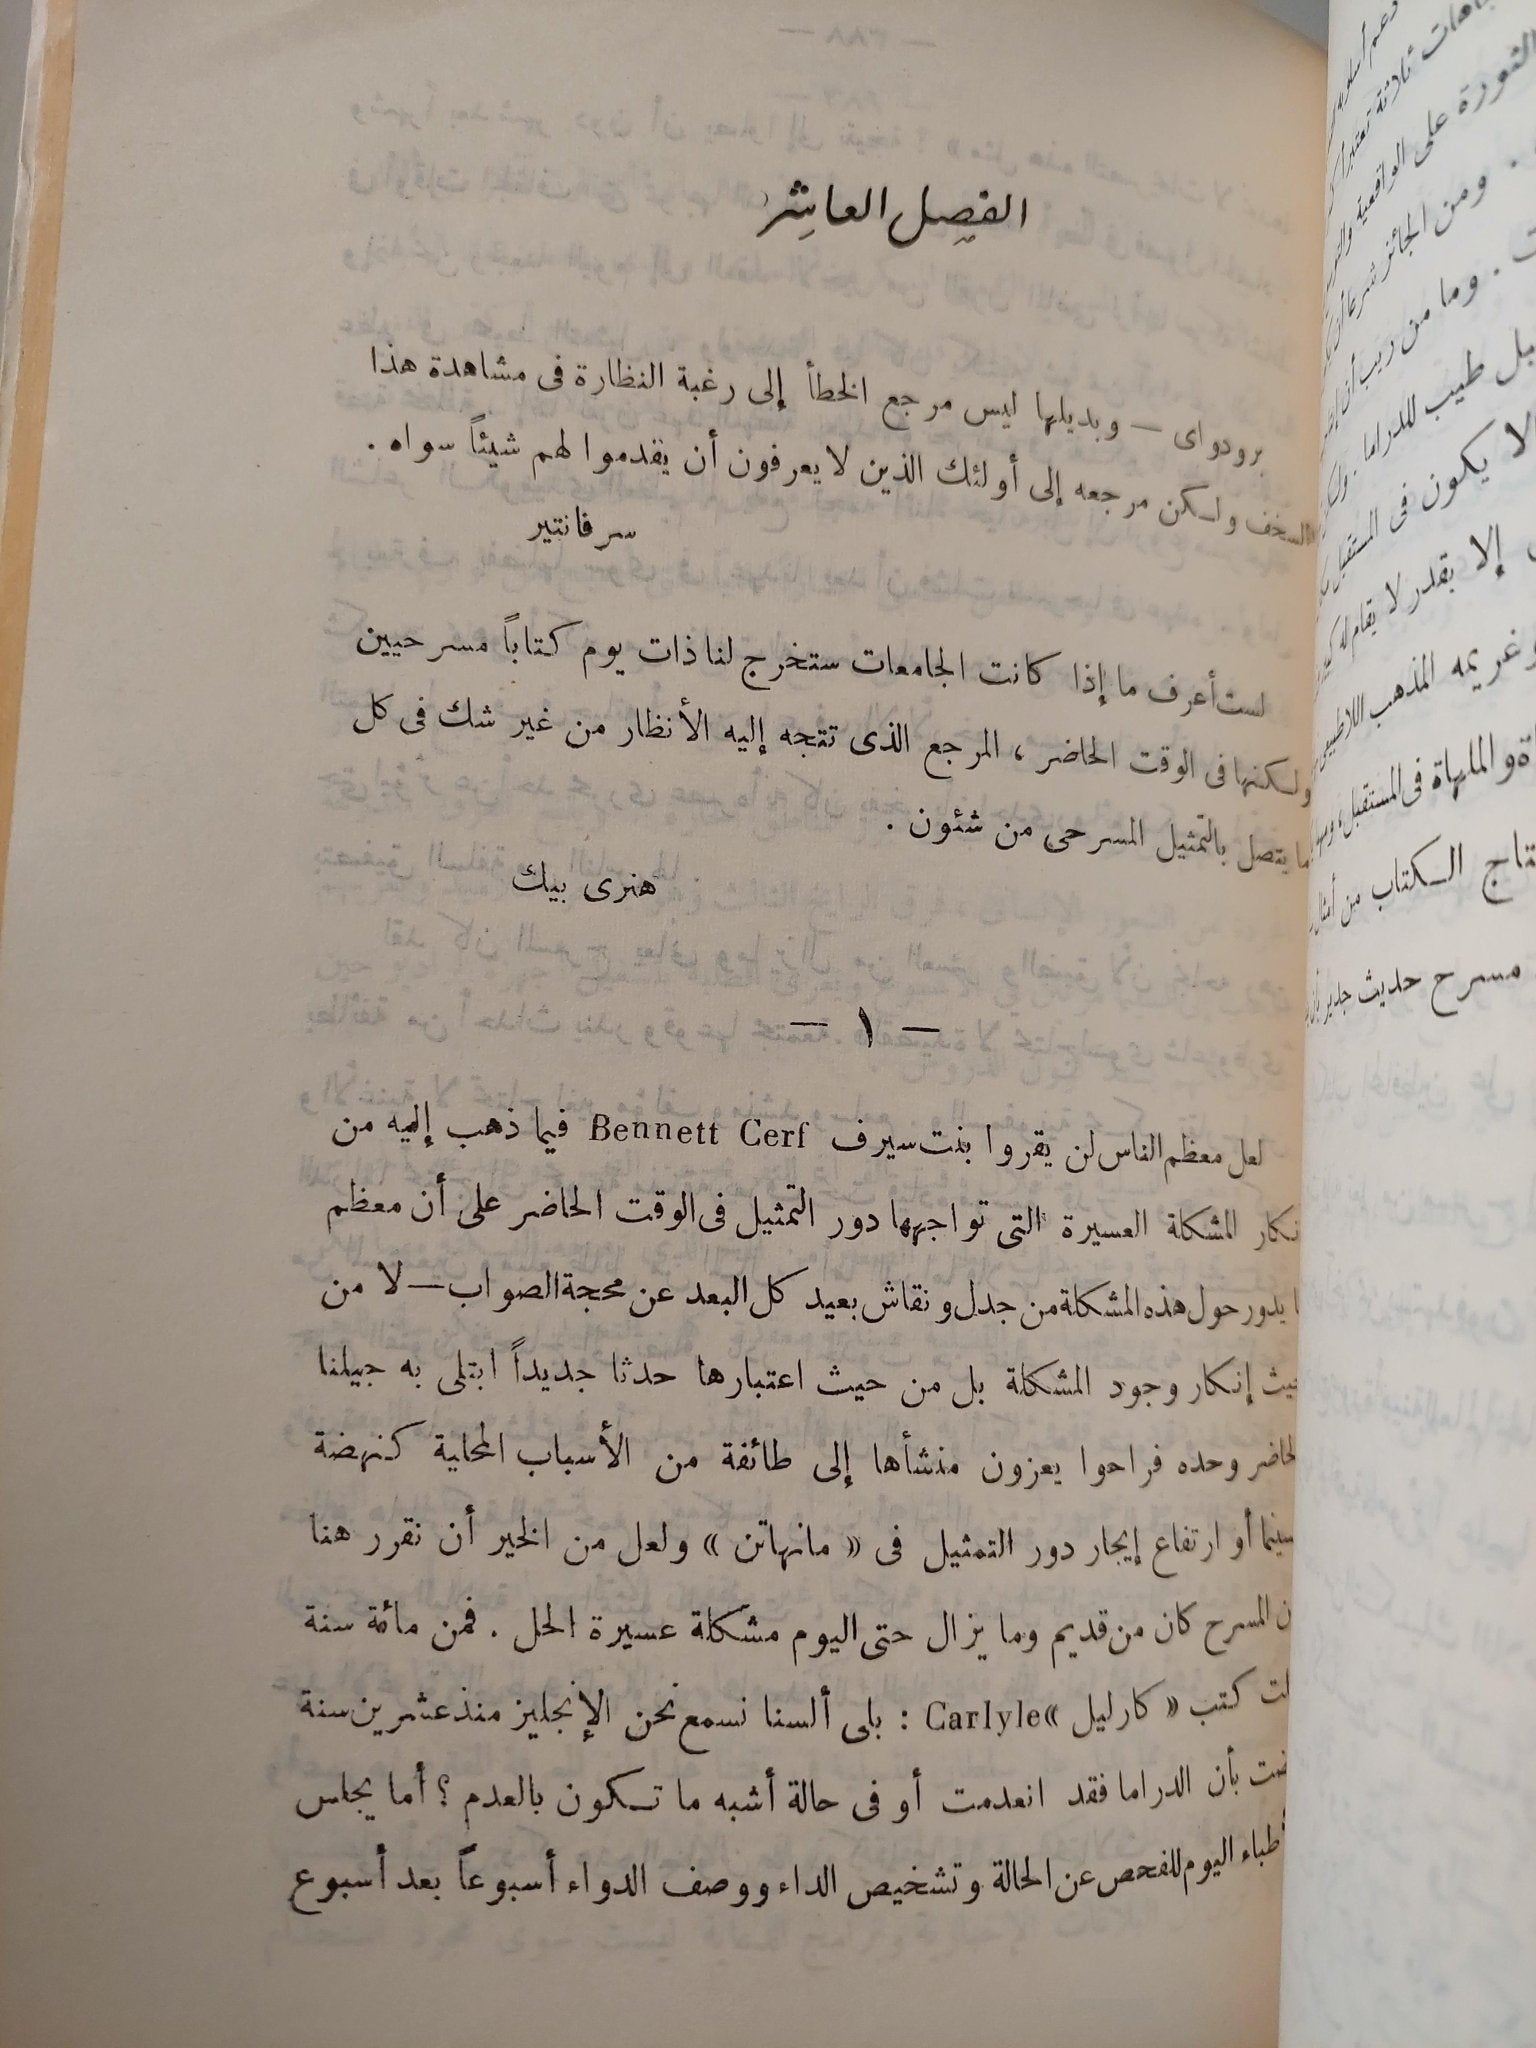 الفصل العاشر
برودواى — وبديلها ليس مرجع الخطأ إلى رغبة النظارة فى مشاهدة هذا
السخف ولكن مرجعه إلى أولئك الذين لا يعرفون أن يقدموا لهم شيئاً سواه .
سرفانتير
لست أعرف ما إذا كانت الجامعات ستخرج لنا ذات يوم كتاباً مسرحيين
ولكنها فى الوقت الحاضر ، المرجع الذى تتجه إليه الأنظار من غير شك فى كل
ما يتصل بالتمثيل المسرحى من شئون .
هنرى بيك
— ١ —
لعل معظم الناس لن يقروا بنت سيرف Bennett Cerf فيما ذهب إليه من
المشكلة العسيرة التى تواجهها دور التمثيل فى الوقت الحاضر على أن معظم
يدور حول هذه المشكلة من جدل ونقاش بعيد كل البعد عن محجة الصواب — لا من
إنكار وجود المشكلة بل من حيث اعتبارها حدثا جديداً ابتلى به جيلنا
وحده فراحوا يعزون منشأها إلى طائفة من الأسباب المحلية كنهضة
أو ارتفاع إيجار دور التمثيل فى « مانهاتن » ولعل من الخير أن نقرر هنا
المسرح كان من قديم وما يزال حتى اليوم مشكلة عسيرة الحل . فمن مائة سنة
كتب « كارليل » Carlyle : بلى ألسنا نسمع نحن الإنجليز منذ عشرين سنة
بأن الدراما فقد انعدمت أو فى حالة أشبه ما تكون بالعدم ؟ أما يجلس
اليوم للفحص عن الحالة وتشخيص الداء ووصف الدواء أسبوعاً بعد أسبوع
ثلاثة
الثورة على الواقعية
ومن الجائز
وما من ريب أن
بل طيب للدراما .
لا يكون فى المستقبل
إلا بقدر لا يقام له
وغريمه المذهب
والملهاة فى المستقبل ،
الكتاب من أمثال
مسرح حديث جدير